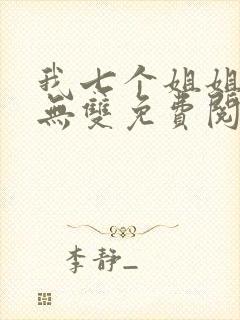 我七个姐姐
無雙免費閱
李靜_